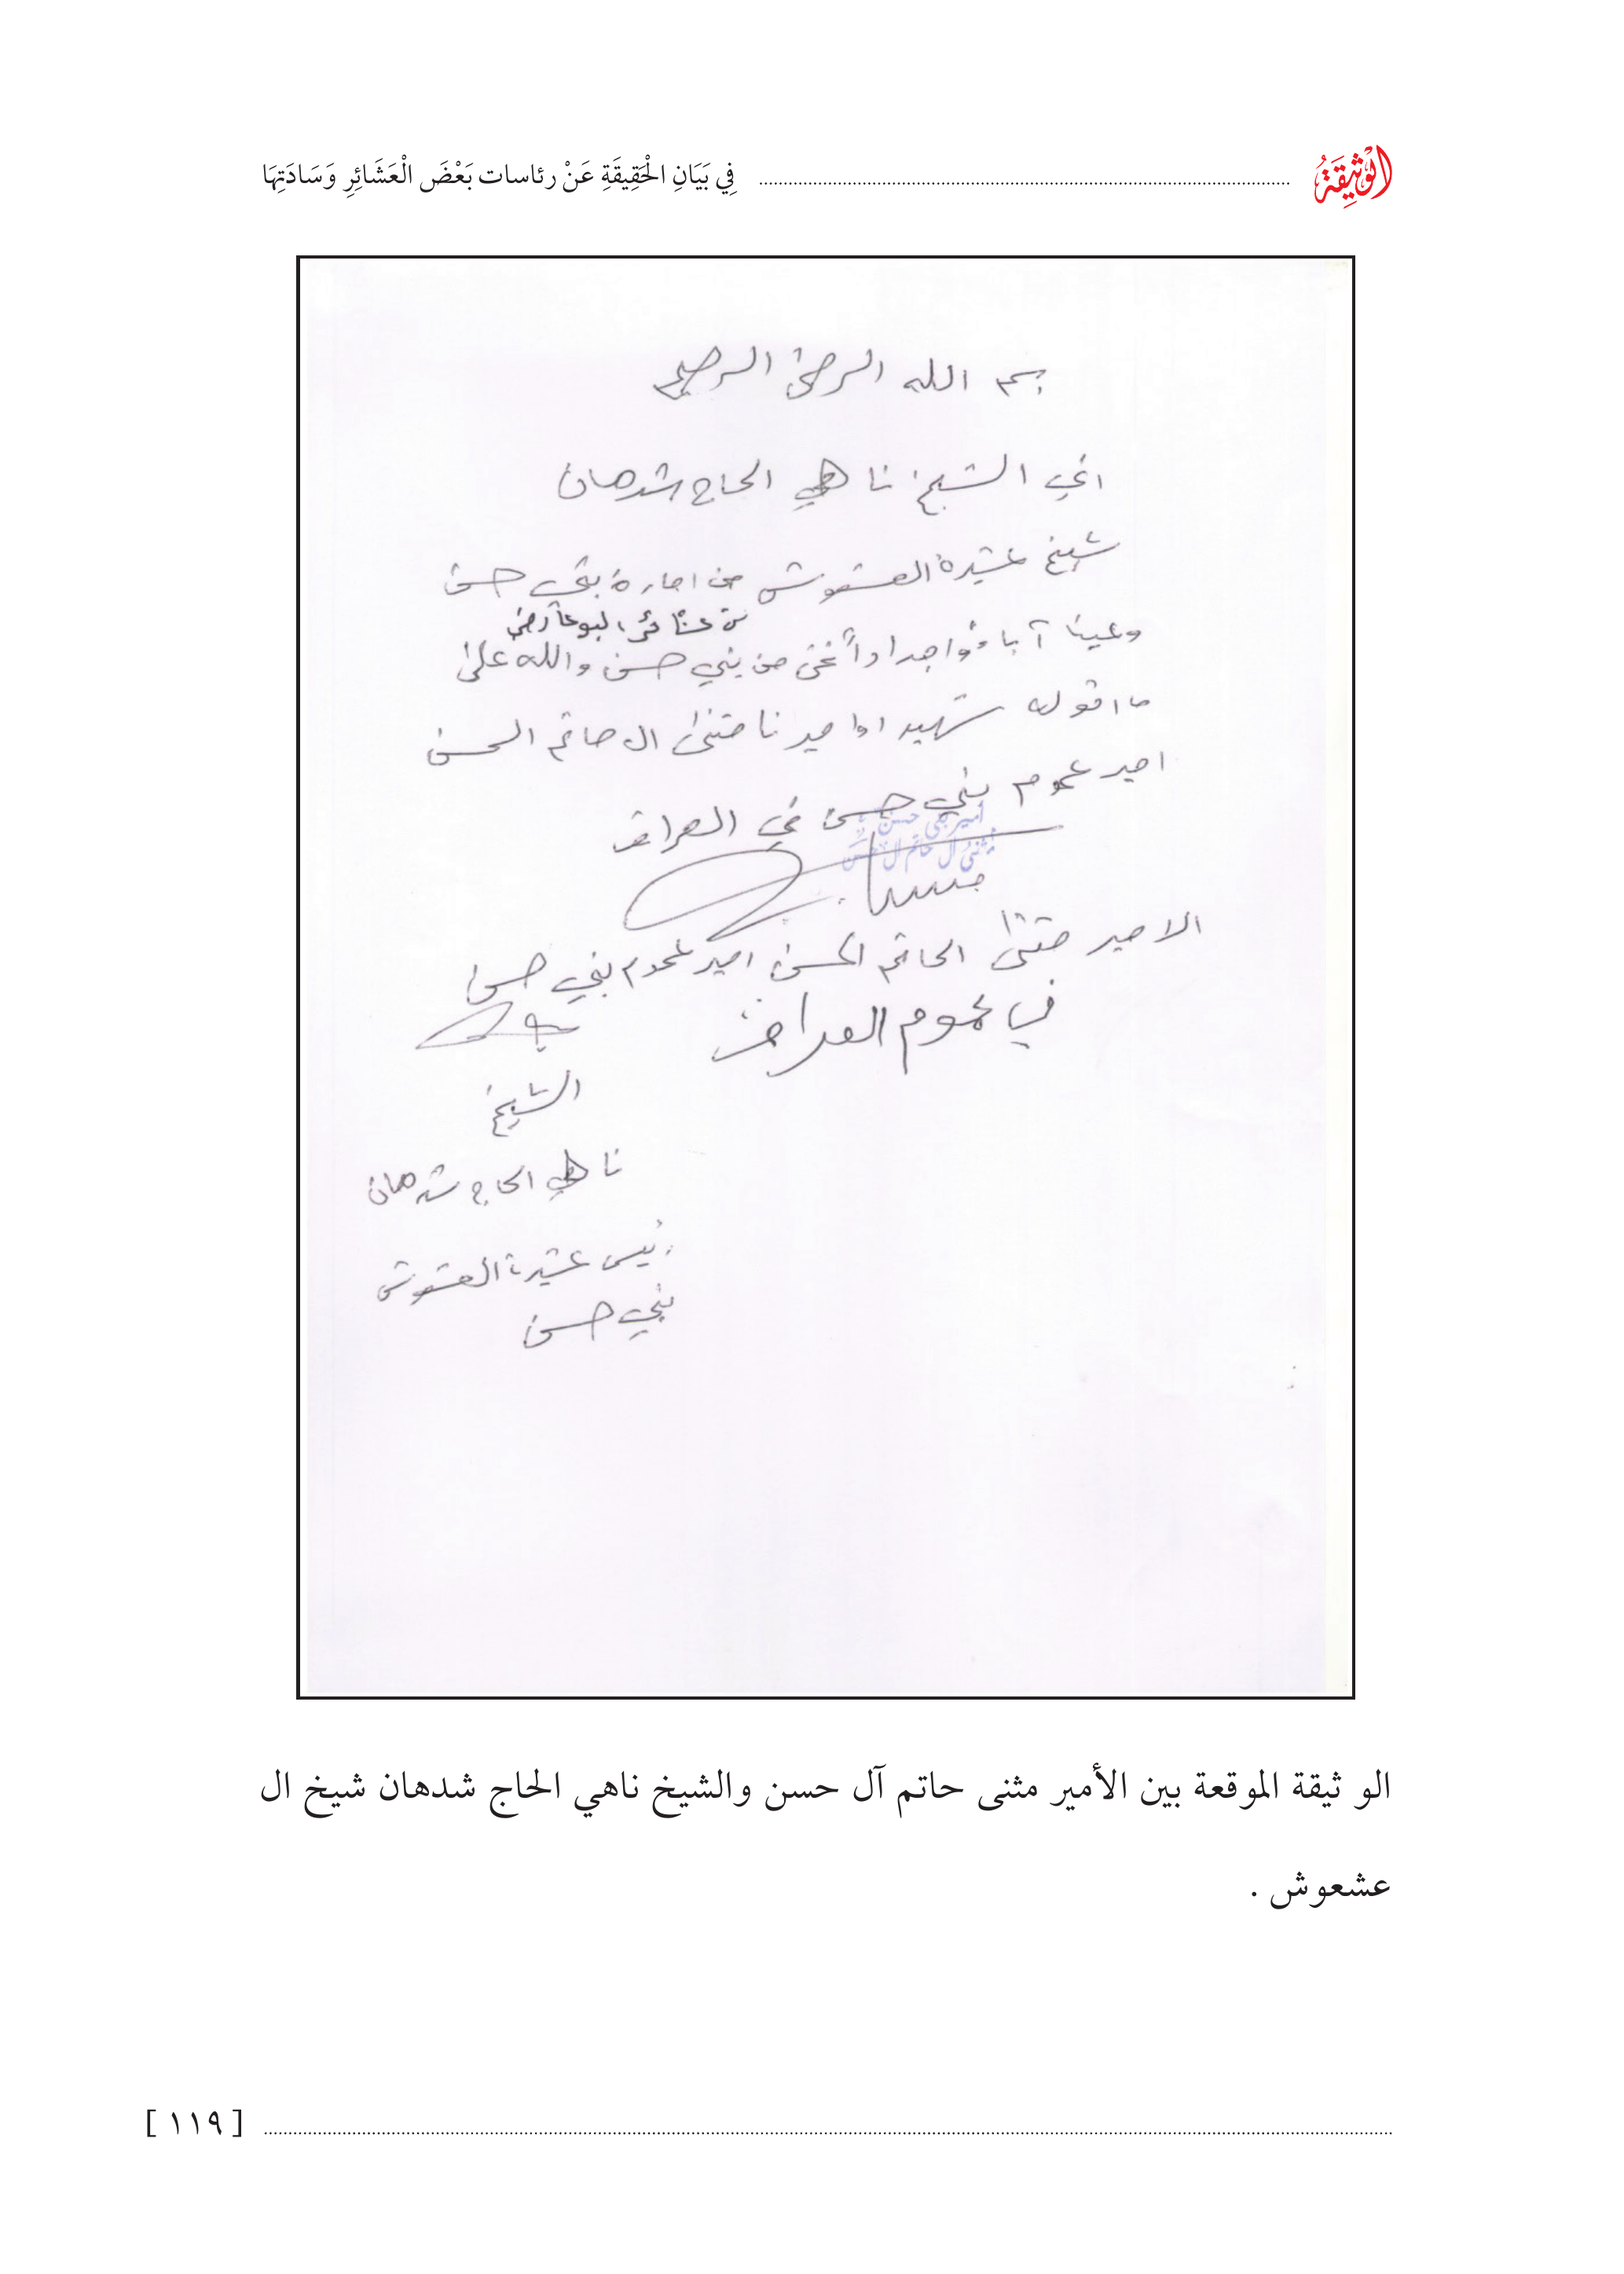 الْوَثِيقَةُ فِي بَيَانِ الْحَقِيقَةِ عَنْ رئاسات بَعْضَ الْعَشَائِرِ وَسَادَتِهَا
بسم الله الرحمن الرحيم
اني الشيخ ناهي الحاج شدهان
شيخ عشيرة العشعوش من امارة بني حسن
من عشائر البوعارضي
وعينا آباءً واجداداً نحن من بني حسن والله على
ما اقوله شهيد اميرنا مثنى ال حاتم الحسن
امير عموم بني حسن في العراق
أمير بني حسن
مثنى ال حاتم ال حسن
الامير مثنى الحاتم الحسن امير عموم بني حسن
في عموم العراق
الشيخ
ناهي الحاج شدهان
رئيس عشيرة العشعوش
بني حسن
الو ثيقة الموقعة بين الأمير مثنى حاتم آل حسن والشيخ ناهي الحاج شدهان شيخ ال
عشعوش .
[ ١١٩ ]